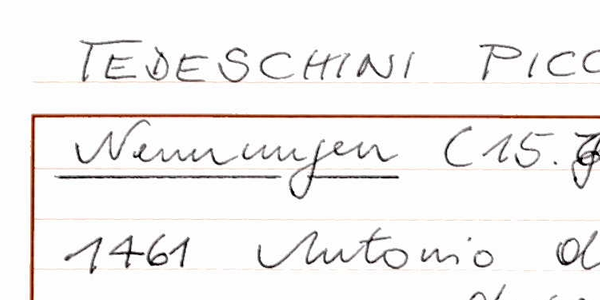 TEDESCHINI PICC
Nennungen (15. J
1461 Antonio d